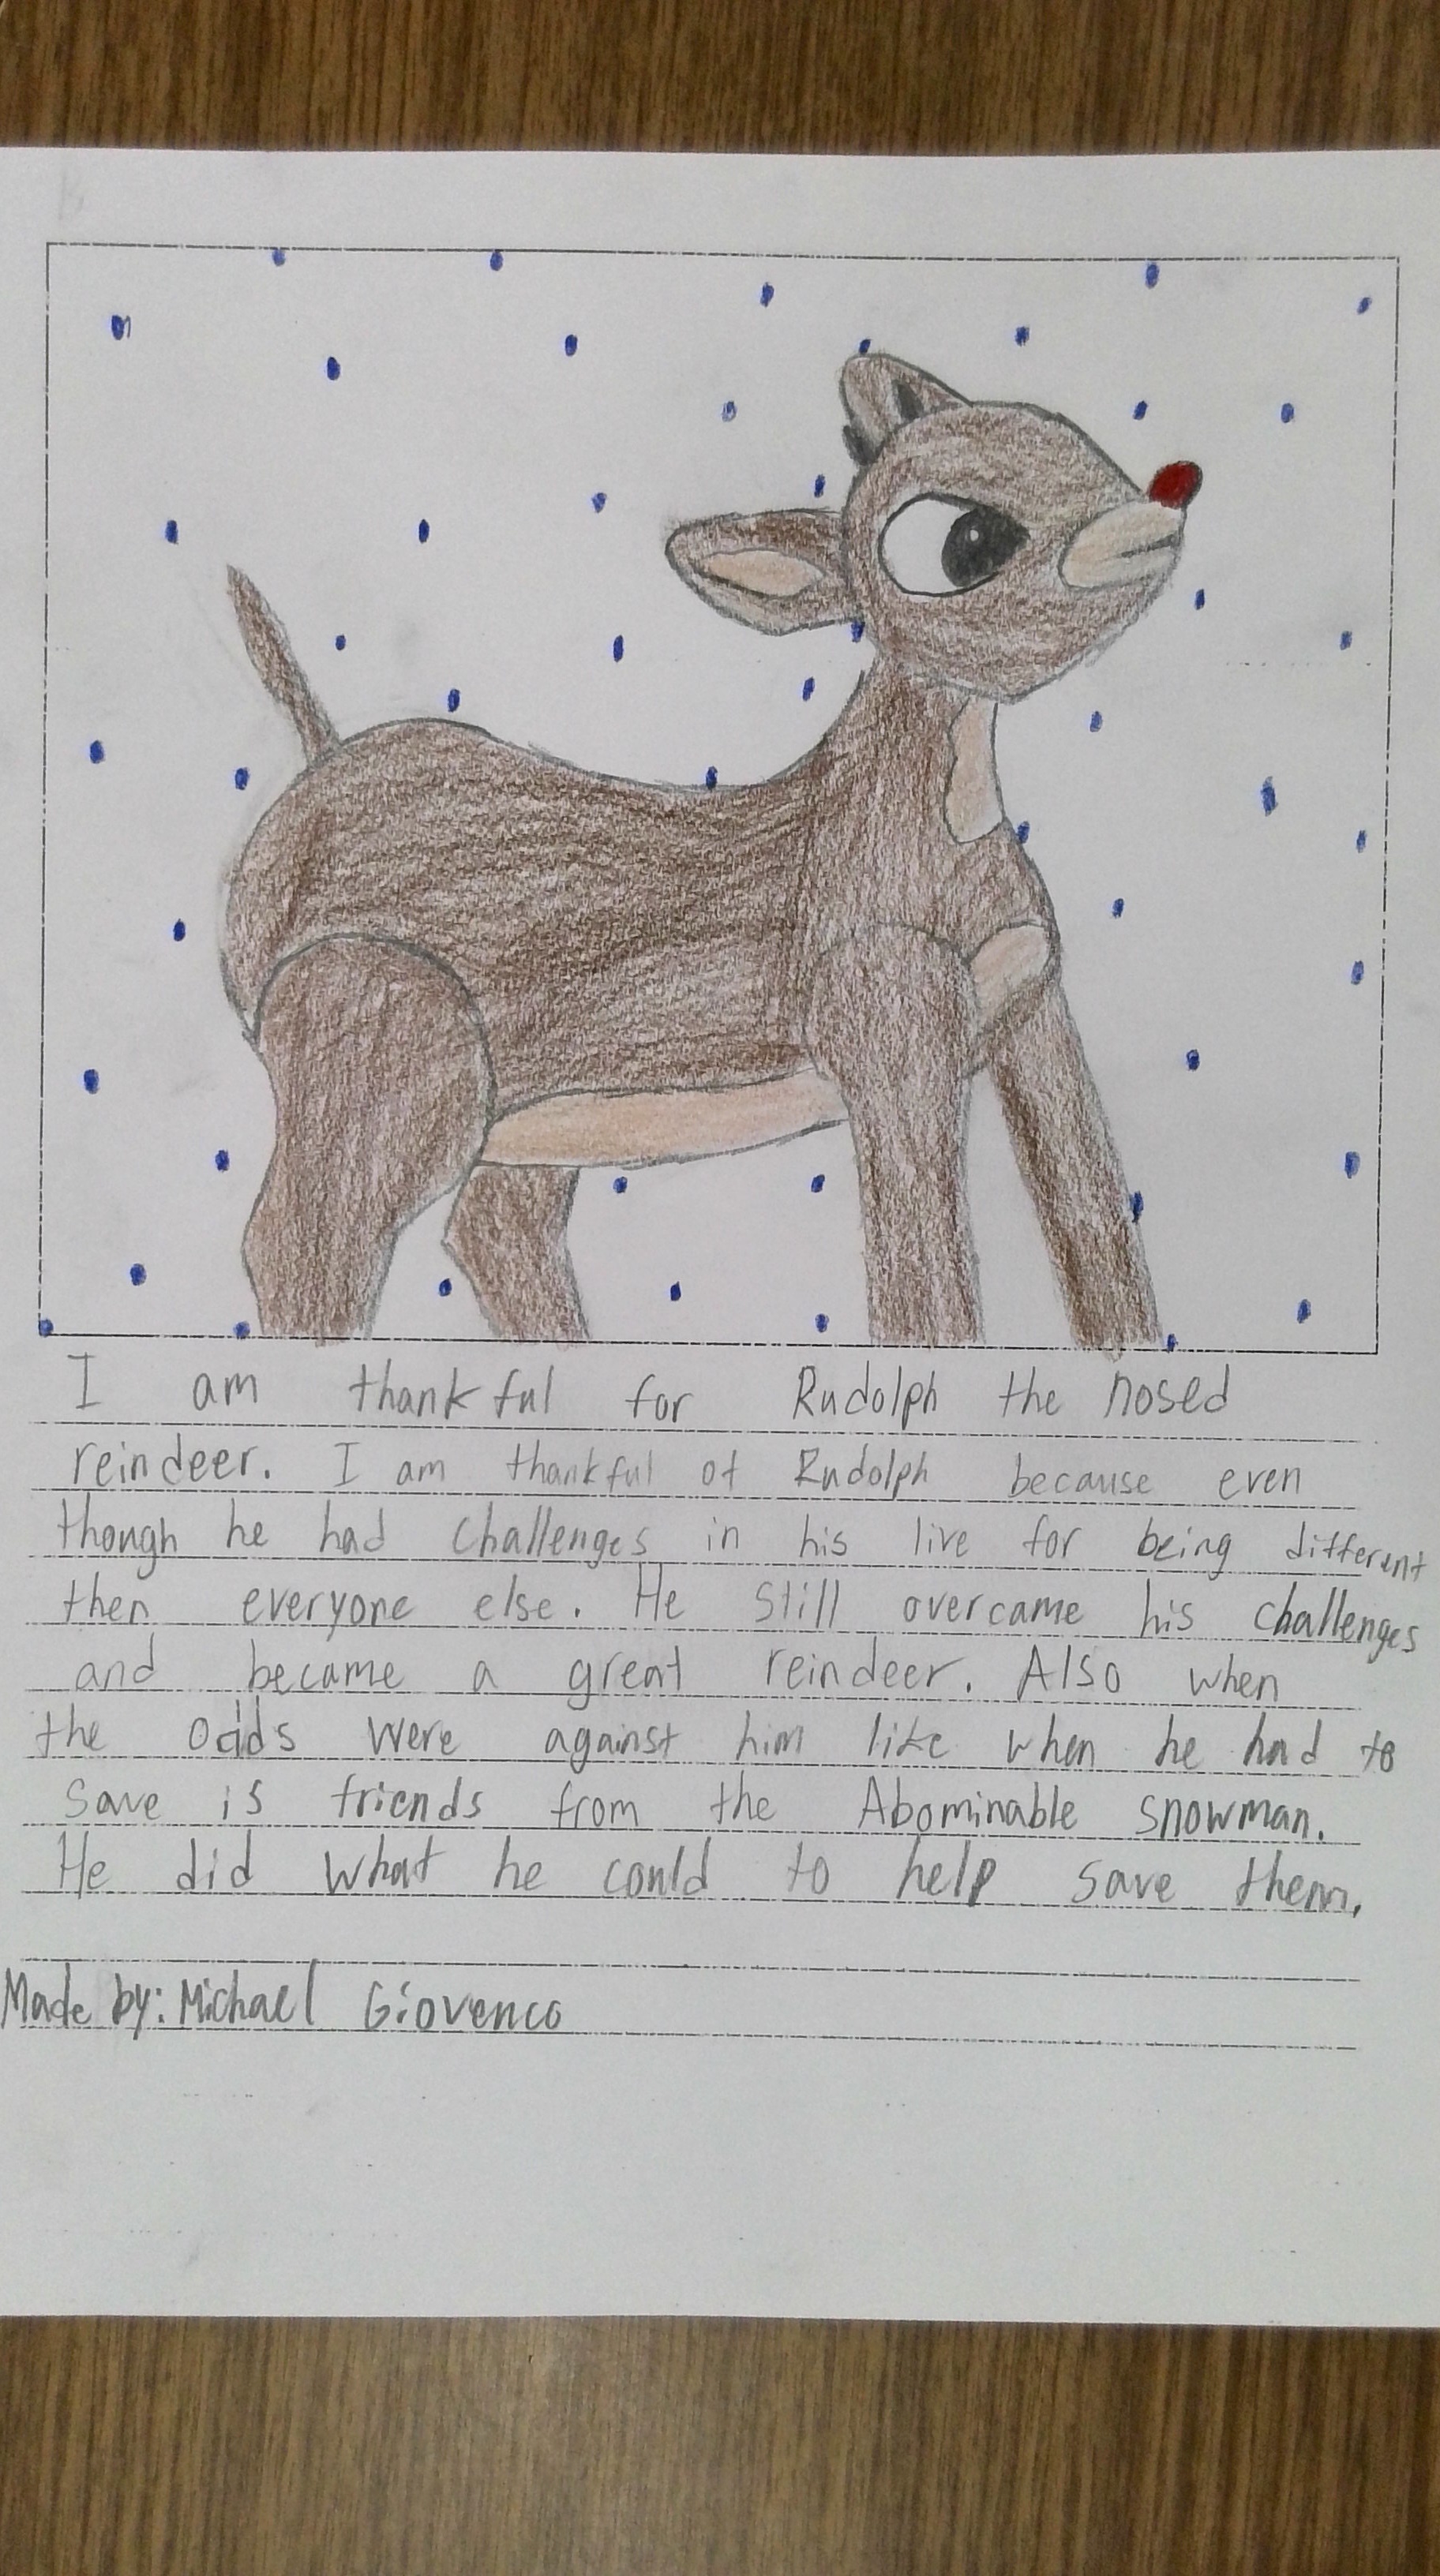 I am thankful for Rudolph the nosed
reindeer. I am thankful of Rudolph because even
though he had challenges in his live for being different
then everyone else. He still overcame his challenges
and became a great reindeer. Also when
the odds were against him like when he had to
save is friends from the Abominable snowman.
He did what he could to help save them.
Made by: Michael Giovenco